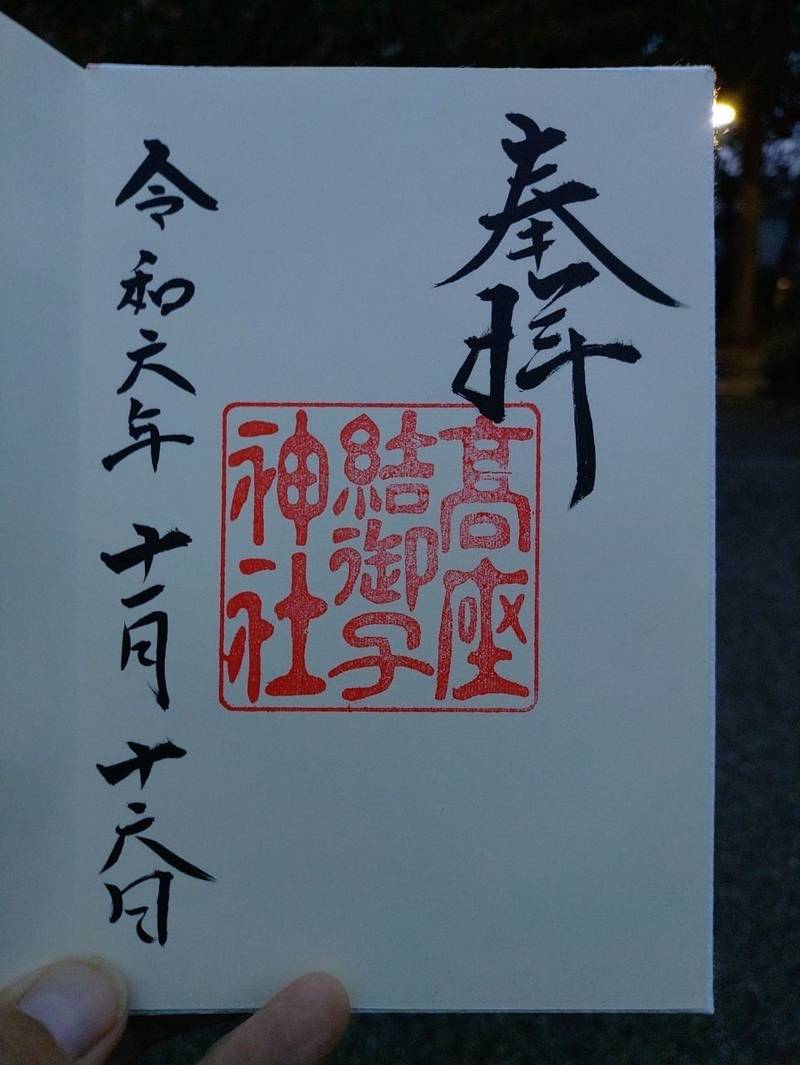 奉拝
髙座
結御子
神社
令和六年十一月十六日